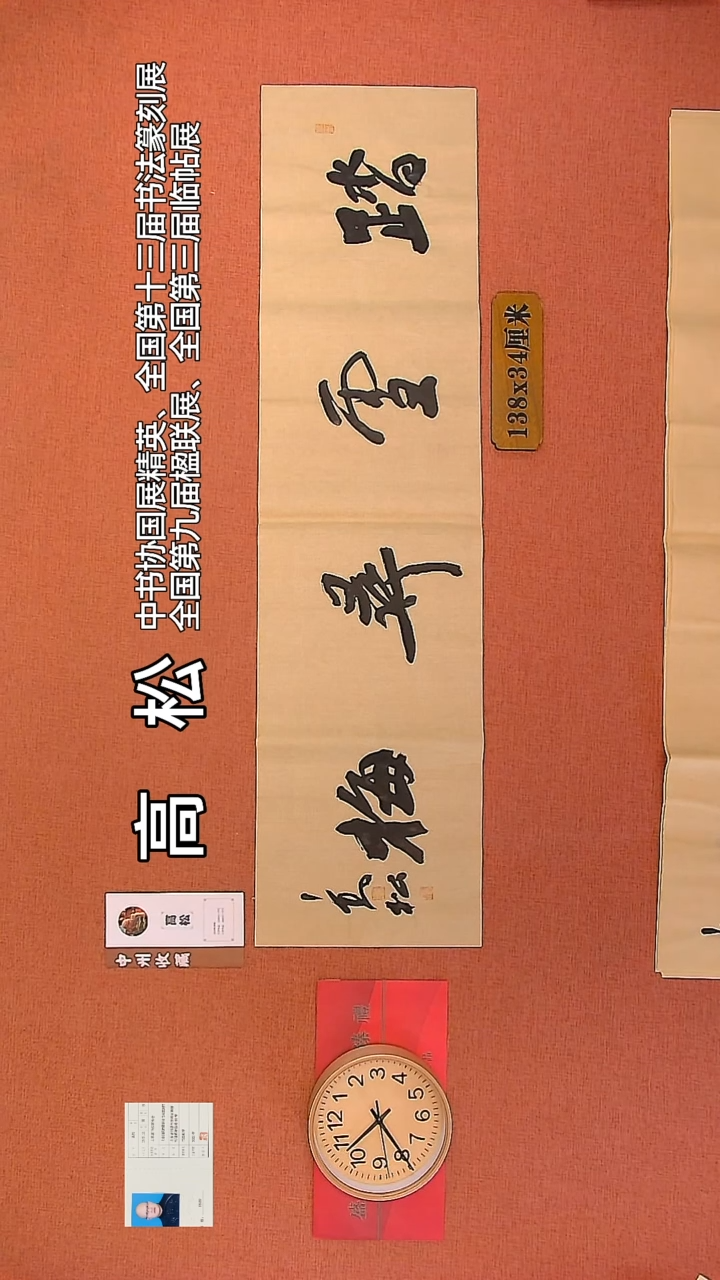 高 松
中书协国展精英、全国第十三届书法篆刻展
全国第九届楹联展、全国第三届临帖展
高松
中州收藏
踏雪寻梅
高松
138x34厘米
12 1 2 3 4 5 6 7 8 9 10 11